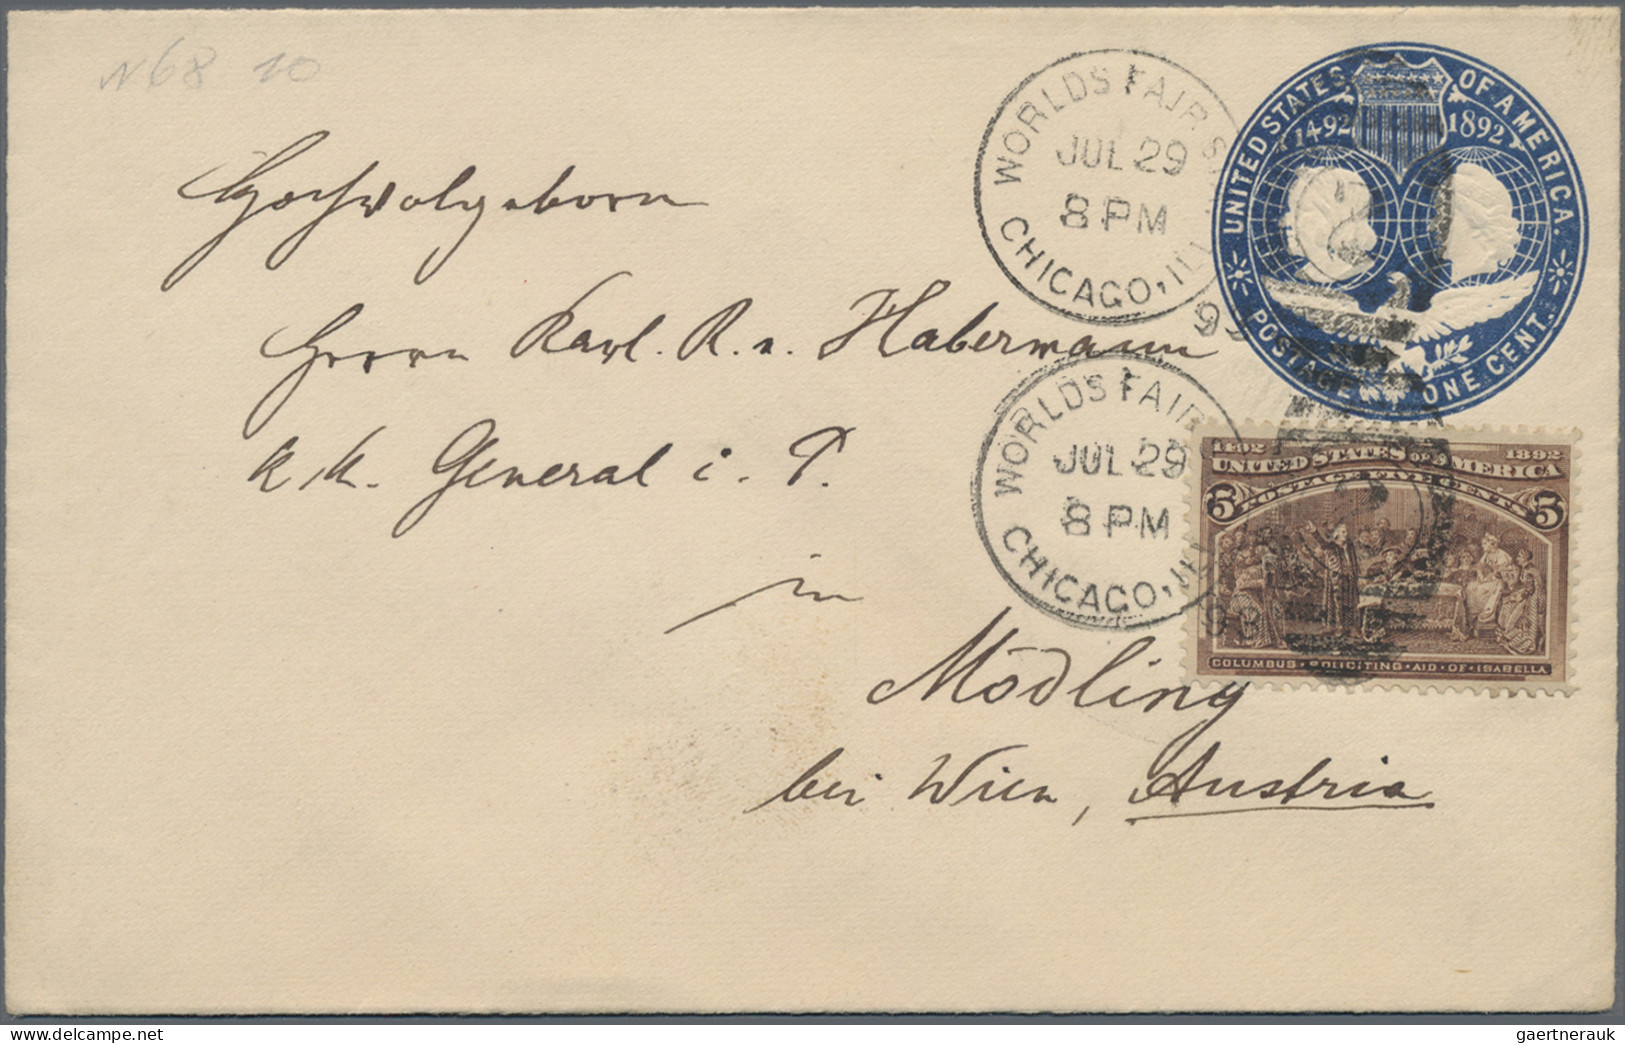 N68 10
WORLDS FAIR S
JUL 29
8 PM
CHICAGO, ILL
9
UNITED STATES OF AMERICA.
1492 1892
POSTAGE ONE CENT.
Hochwolgeborn
Herrn Karl. R. v. Habermann
k. k. General i. P.
in
Mödling
bei Wien, Austria
WORLDS FAIR
JUL 29
8 PM
CHICAGO, ILL
93
1492 1892
UNITED STATES OF AMERICA
POSTAGE FIVE CENTS
5 5
COLUMBUS SOLICITING AID OF ISABELLA
gaertnerauk